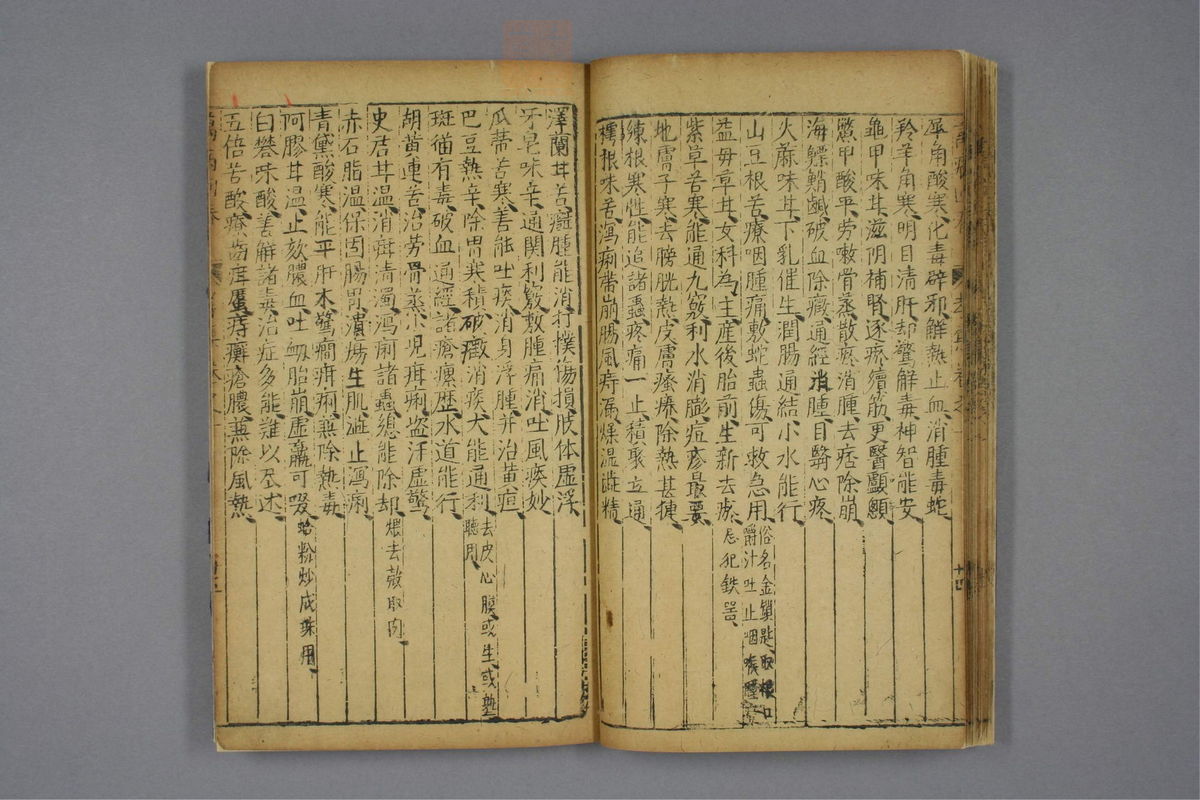 犀角酸寒化毒辟邪解熱止血消腫毒蛇
羚羊角寒明目清肝却驚解毒神智能安
龜甲味甘滋阴補腎逐瘀續筋更醫顱顖
鱉甲酸平劳嗽骨蒸散瘀消腫去痞除崩
海螵蛸鹹破血除癥通經消腫目翳心疼
火蔴味甘下乳催生潤腸通結小水能行
山豆根苦療咽腫痛敷蛇蟲傷可救急用 俗名金鎖匙取根口
嚼汁吐止咽喉腫
益母草甘女科為主産後胎前生新去瘀 忌犯鉄器
紫草苦寒能通九竅利水消膨痘疹最要
地膚子寒去膀胱熱皮膚瘙癢除熱甚捷
練根寒性能追諸蟲疼痛一止積聚立通
樗根味苦瀉痢帶崩腸風痔漏燥湿澁精
澤蘭甘苦癰腫能消打撲傷損肢体虚浮
牙皂味辛通関利竅敷腫痛消吐風痰妙
瓜蒂苦寒善能吐痰消身浮腫并治黄疸
巴豆熱辛除胃寒積破癥消痰大能通利 去皮心膜或生或熟
聽用
斑猫有毒破血通經諸瘡瘰歷水道能行
胡黄連苦治劳骨蒸小児疳痢盗汗虚驚
史君甘温消疳清濁瀉痢諸蟲總能除却 煨去殼取肉
赤石脂温保固腸胃潰瘍生肌澁止瀉痢
青黛酸寒能平肝木驚癇疳痢兼除熱毒
阿膠甘温止欬膿血吐衂胎崩虚羸可啜 蛤粉炒成珠用
白礬味酸善解諸毒治症多能難以尽述
五倍苦酸療齒疳䘌痔癬瘡膿兼除風熱